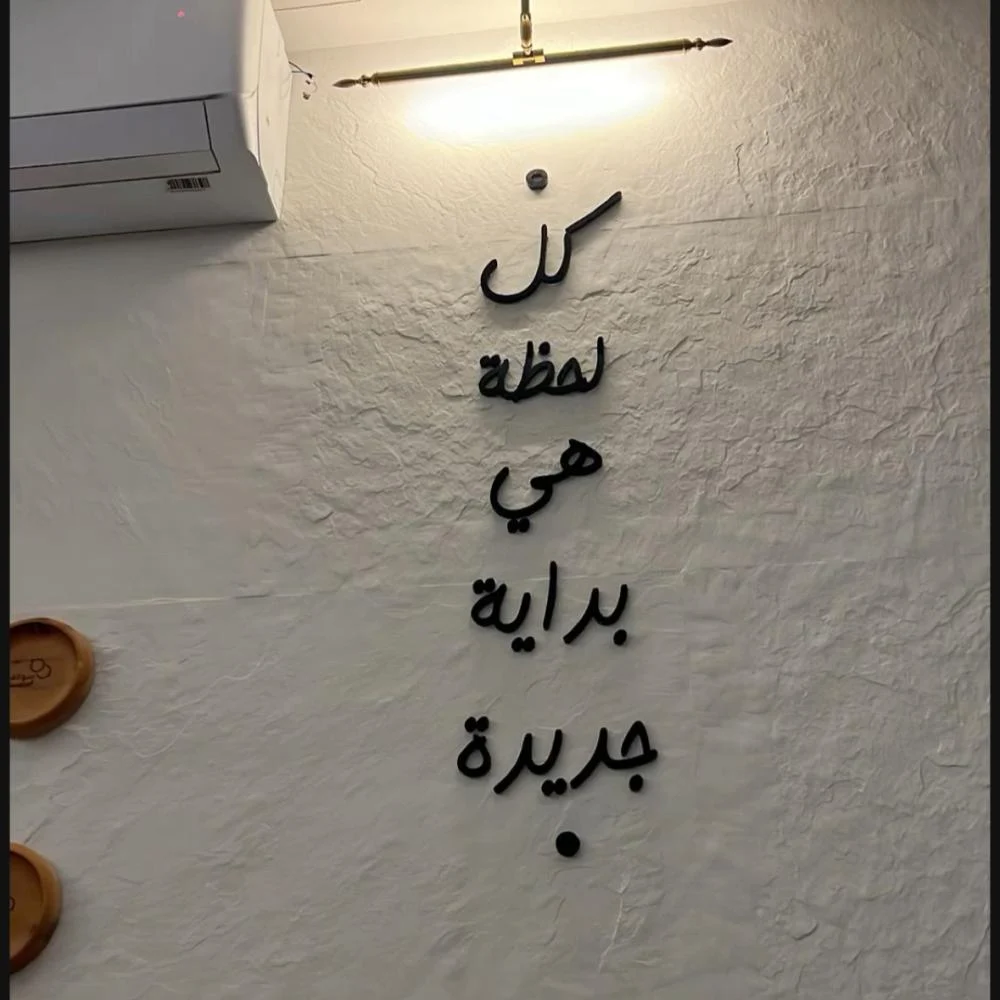 كل
لحظة
هي
بداية
جديدة